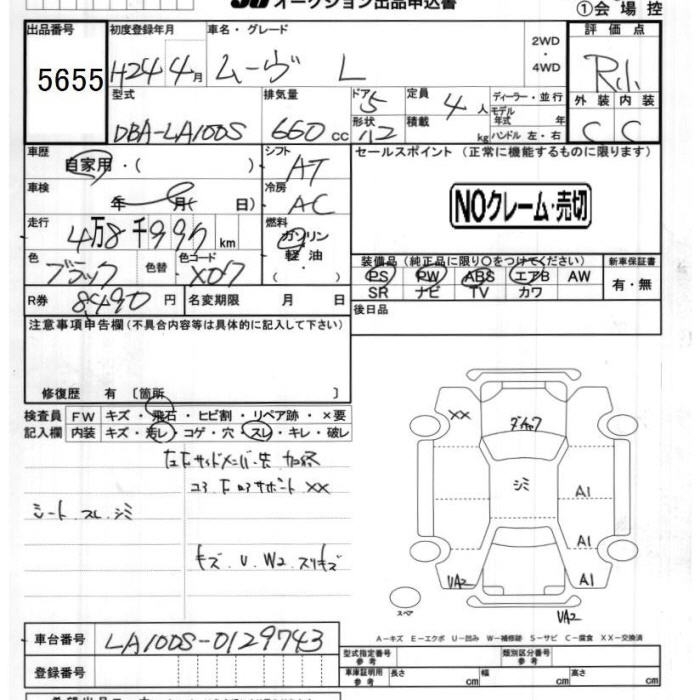 オークション出品申込書
①会場控
出品番号
5655
初度登録年月
H24年4月
車名・グレード
ムーヴ L
2WD
・
4WD
評価点
外装 内装
C C
型式
DBA-LA100S
排気量
660cc
ドア
5
形状
定員
4人
積載
kg
ディーラー・並行
モデル年式 年
ハンドル 左・右
車歴
自家用・( )
シフト
AT
セールスポイント (正常に機能するものに限ります)
NOクレーム・売切
車検
年 月( 日)
冷房
AC
走行
4万8千997km
燃料
ガソリン
軽油・
( )
色
ブラック
色替
色コード
X07
装備品 (純正品に限り○をつけてください)
PS PW ABS エアB AW
SR ナビ TV カワ
新車保証書
有・無
R券
8490円
名変期限 月 日
後日品
注意事項申告欄 (不具合内容等は具体的に記入して下さい)
修復歴 有 〔箇所 〕
検査員
記入欄
FW キズ・飛石・ヒビ割・リペア跡・×要
内装 キズ・汚レ・コゲ・穴・スレ・キレ・破レ
シート スレ シミ
コア
サポート XX
キズ、U、W2、スリキズ
XX
シミ
A1
A1
A1
UA2
UA2
スペア
A−キズ E−エクボ U−凹み W−補修跡 S−サビ C−腐食 XX−交換済
車台番号
LA100S-0129743
登録番号
型式指定番号
参考
類別区分番号
参考
車庫証明用
参考
長さ cm
幅 cm
高さ cm